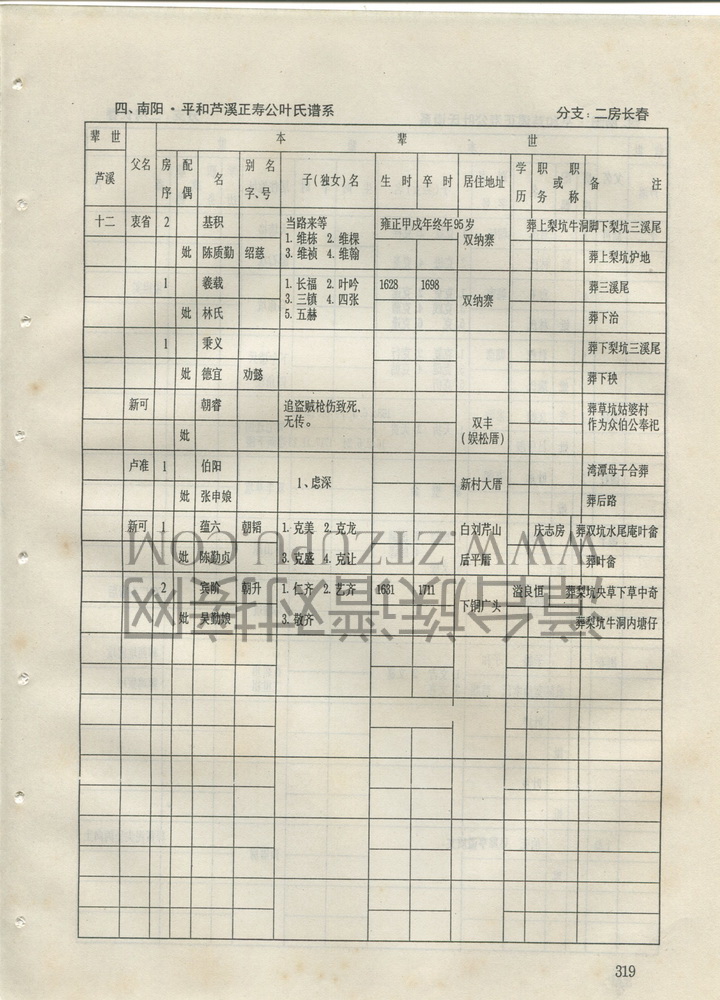 四、南阳·平和芦溪正寿公叶氏谱系 分支：二房长春
辈世 本辈世
芦溪 父名 房序 配偶 名 别名字、号 子(独女)名 生时 卒时 居住地址 学历 职务或职称 备注
十二 衷省 2 基积 当路来等 雍正甲戌年终年95岁 葬上梨坑牛洞脚下梨坑三溪尾
1.维栋 2.维棵 双纳寨
妣 陈质勤 绍慈 3.维祯 4.维翰 葬上梨坑炉地
1 羲载 1.长福 2.叶吟 1628 1698 葬三溪尾
3.三镇 4.四张 双纳寨
妣 林氏 5.五赫 葬下治
1 秉义 葬下梨坑三溪尾
妣 德宜 劝懿 葬下秧
新可 朝睿 追盗贼枪伤致死、 葬草坑姑婆村
无传。 双丰 作为众伯公奉祀
妣 (娱松厝)
卢准 1 伯阳 湾潭母子合葬
1、虑深 新村大厝
妣 张申娘 葬后路
新可 1 蕴六 朝韬 1.克美 2.克龙 白刘芹山 庆志房 葬双坑水尾庵叶畲
妣 陈勤贞 3.克盛 4.克让 后平厝 葬叶畲
2 宾阶 朝升 1.仁齐 2.艺齐 1631 1711 溢良恒 葬梨坑央草下草中奇
下铜广头
妣 吴勤娘 3.敬齐 葬梨坑牛洞内塘仔
WWW.ZTZUPU.COM
漳台族谱对接网
319